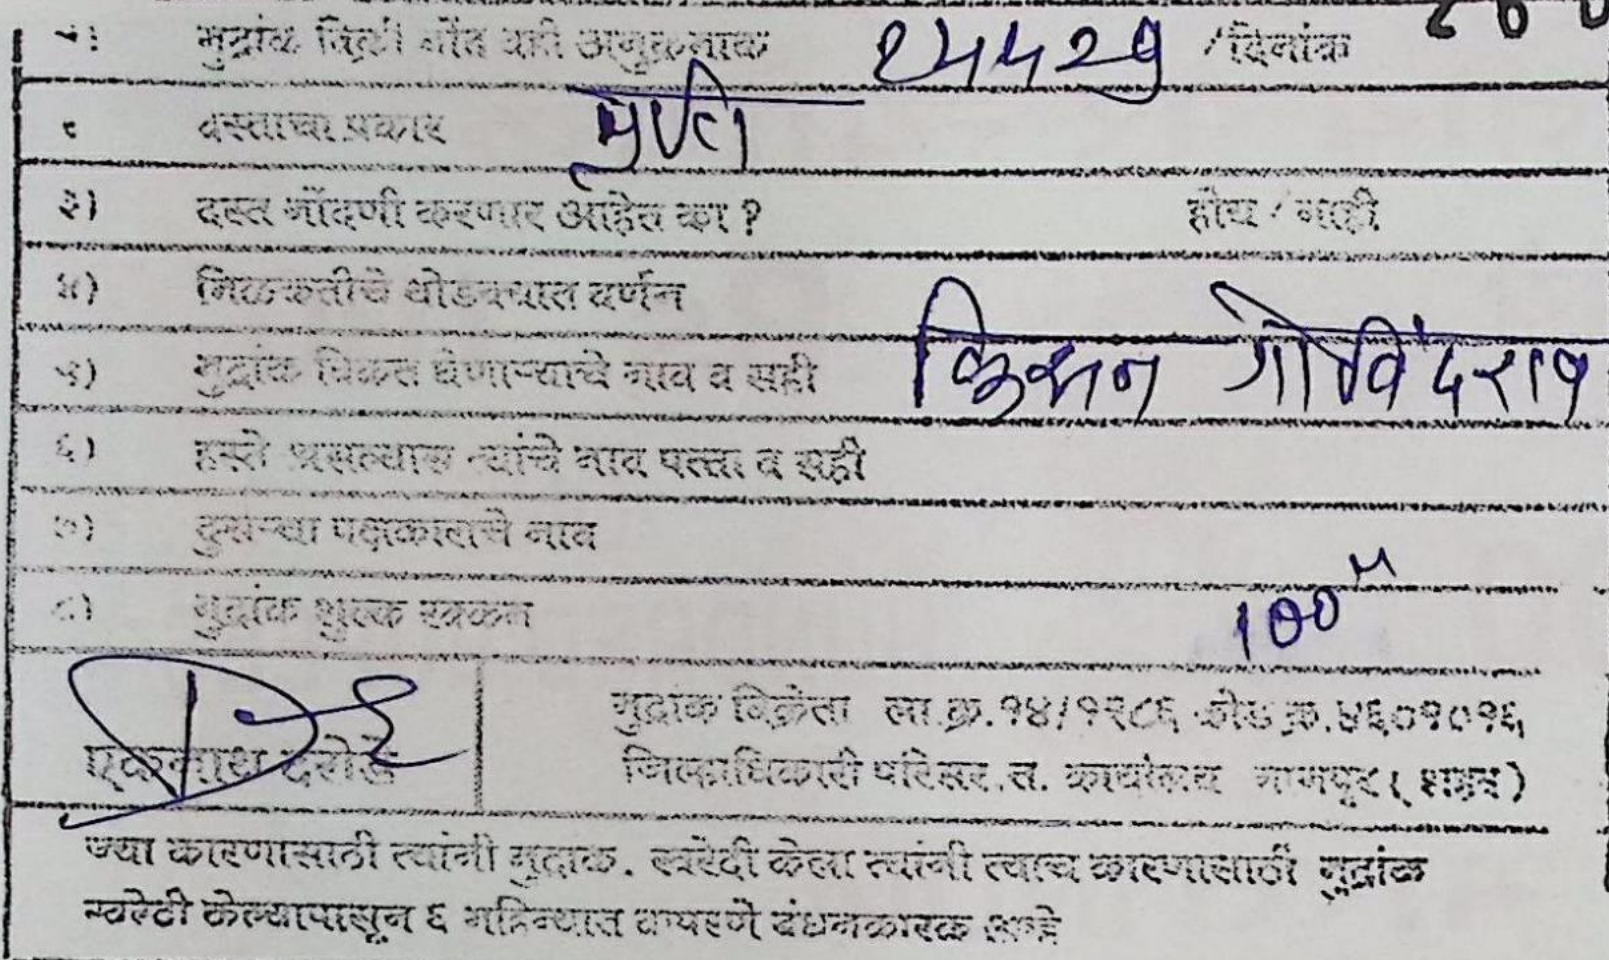 मुद्रांक विक्री नोंद वही अनुक्रमांक 24429 /दिनांक
दस्ताचा प्रकार
३) दस्त नोंदणी करणार आहेत का ? होय / नाही
४) मिळकतीचे थोडक्यात वर्णन
५) मुद्रांक विकत घेणाऱ्याचे नाव व सही किसन गोविंदराव
६) हस्ते असल्यास त्यांचे नाव पत्ता व सही
७) दुसऱ्या पक्षकाराचे नाव
८) मुद्रांक शुल्क रक्कम 100
एकनाथ दरोडे
मुद्रांक विक्रेता ला.क्र.१४/१९८६ कोड.क्र.४६०१०१६
जिल्हाधिकारी परिसर.त. कार्यालय नागपुर ( शहर )
ज्या कारणासाठी त्यांनी मुद्रांक. खरेदी केला त्यांनी त्याच कारणासाठी मुद्रांक
खरेदी केल्यापासून ६ महिन्यात वापरणे बंधनकारक आहे